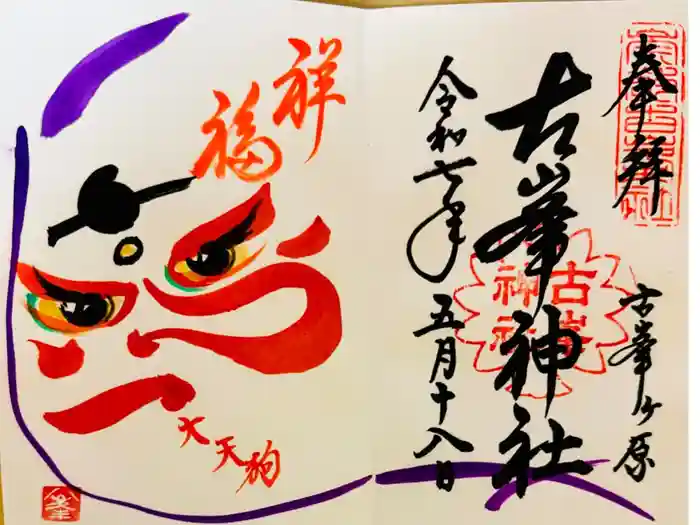 奉拝
古峯ヶ原
古峯神社
令和七年五月十八日
古峯
神社
祥福
大天狗